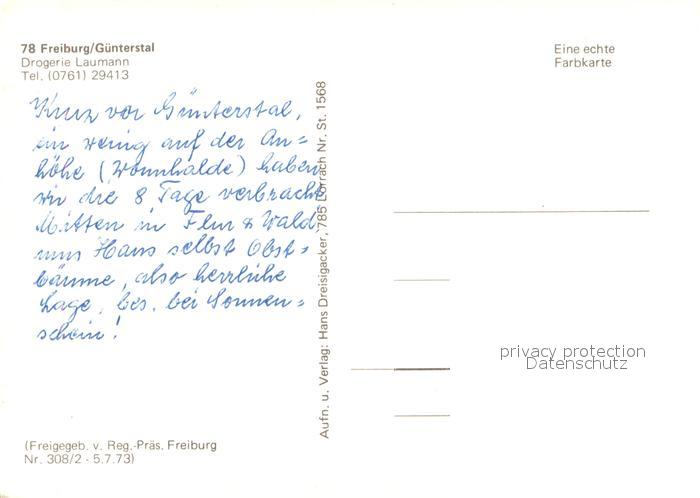 78 Freiburg/Günterstal
Drogerie Laumann
Tel. (0761) 29413
Eine echte
Farbkarte
Kurz vor Günterstal,
ein wenig auf der An=
höhe (Wonnhalde) haben
wir die 8 Tage verbracht
Mitten in Flur & Wald
ums Haus selbst Obst=
bäume, also herrliche
Lage, bes. bei Sonnen=
schein!
Aufn. u. Verlag: Hans Dreisigacker, 785 Lörrach Nr. St. 1568
privacy protection
Datenschutz
(Freigegeb. v. Reg.-Präs. Freiburg
Nr. 308/2 - 5.7.73)